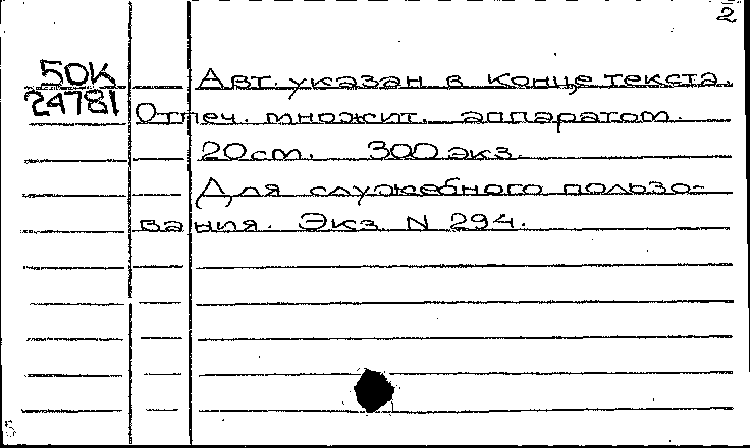 2
50К
24781
Авт. указан в конце текста.
Отпеч. множит. аппаратом.
20 ст. 300 экз.
Для служебного пользо-
вания. Экз. N 294.
5